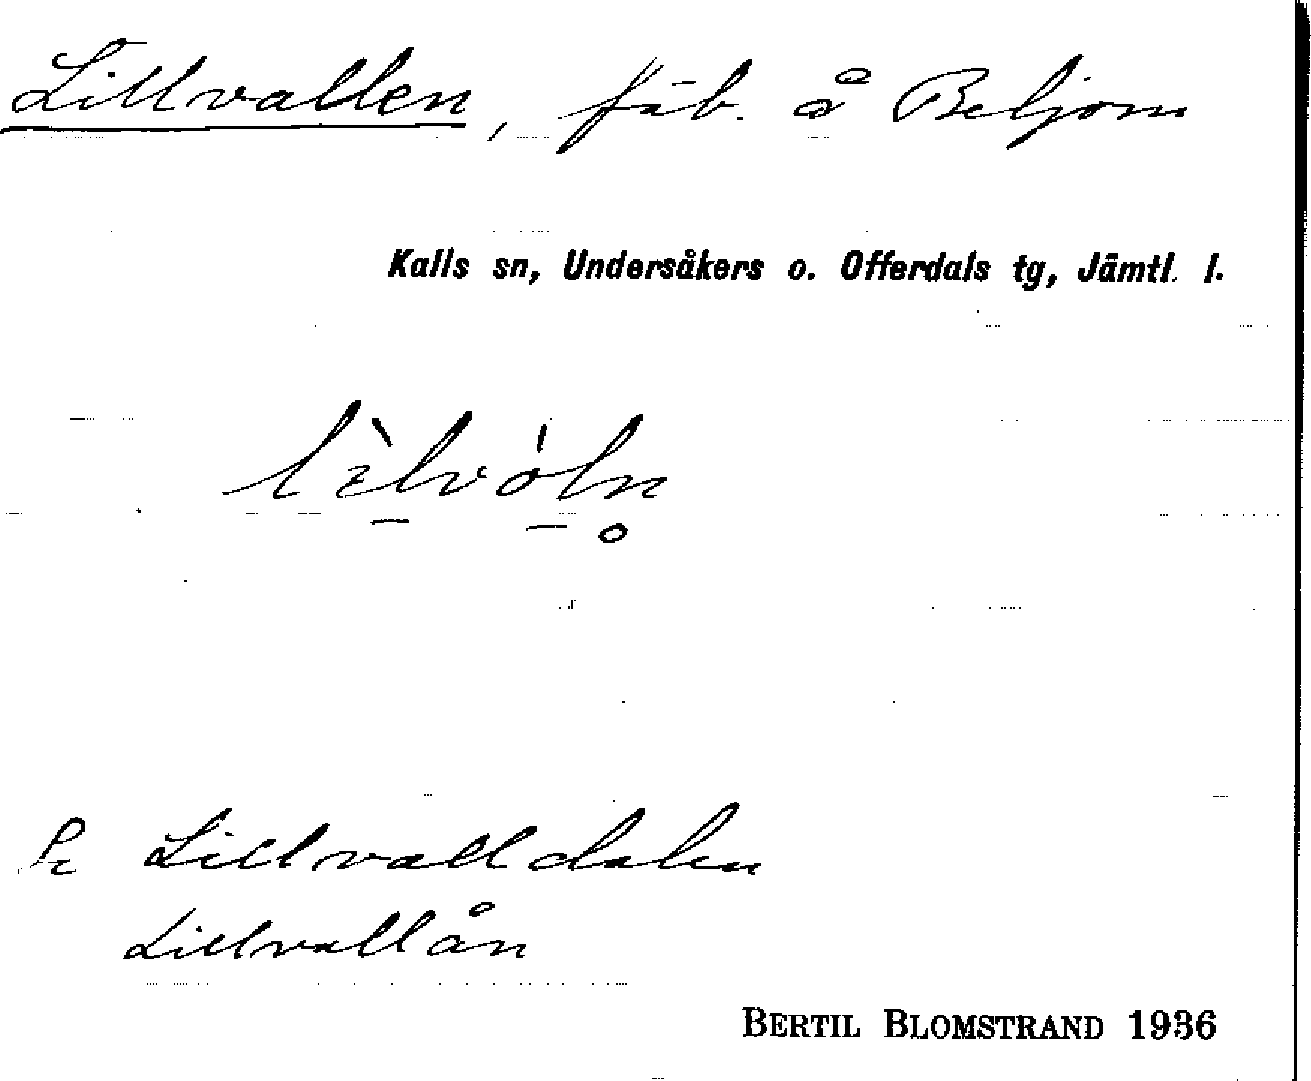 Lillvallen, fäb. å Beljom
Kalls sn, Undersåkers o. Offerdals tg, Jämtl. l.
lìlvóln̥
Se Lillvalldalen
Lillvallån
BERTIL BLOMSTRAND 1936